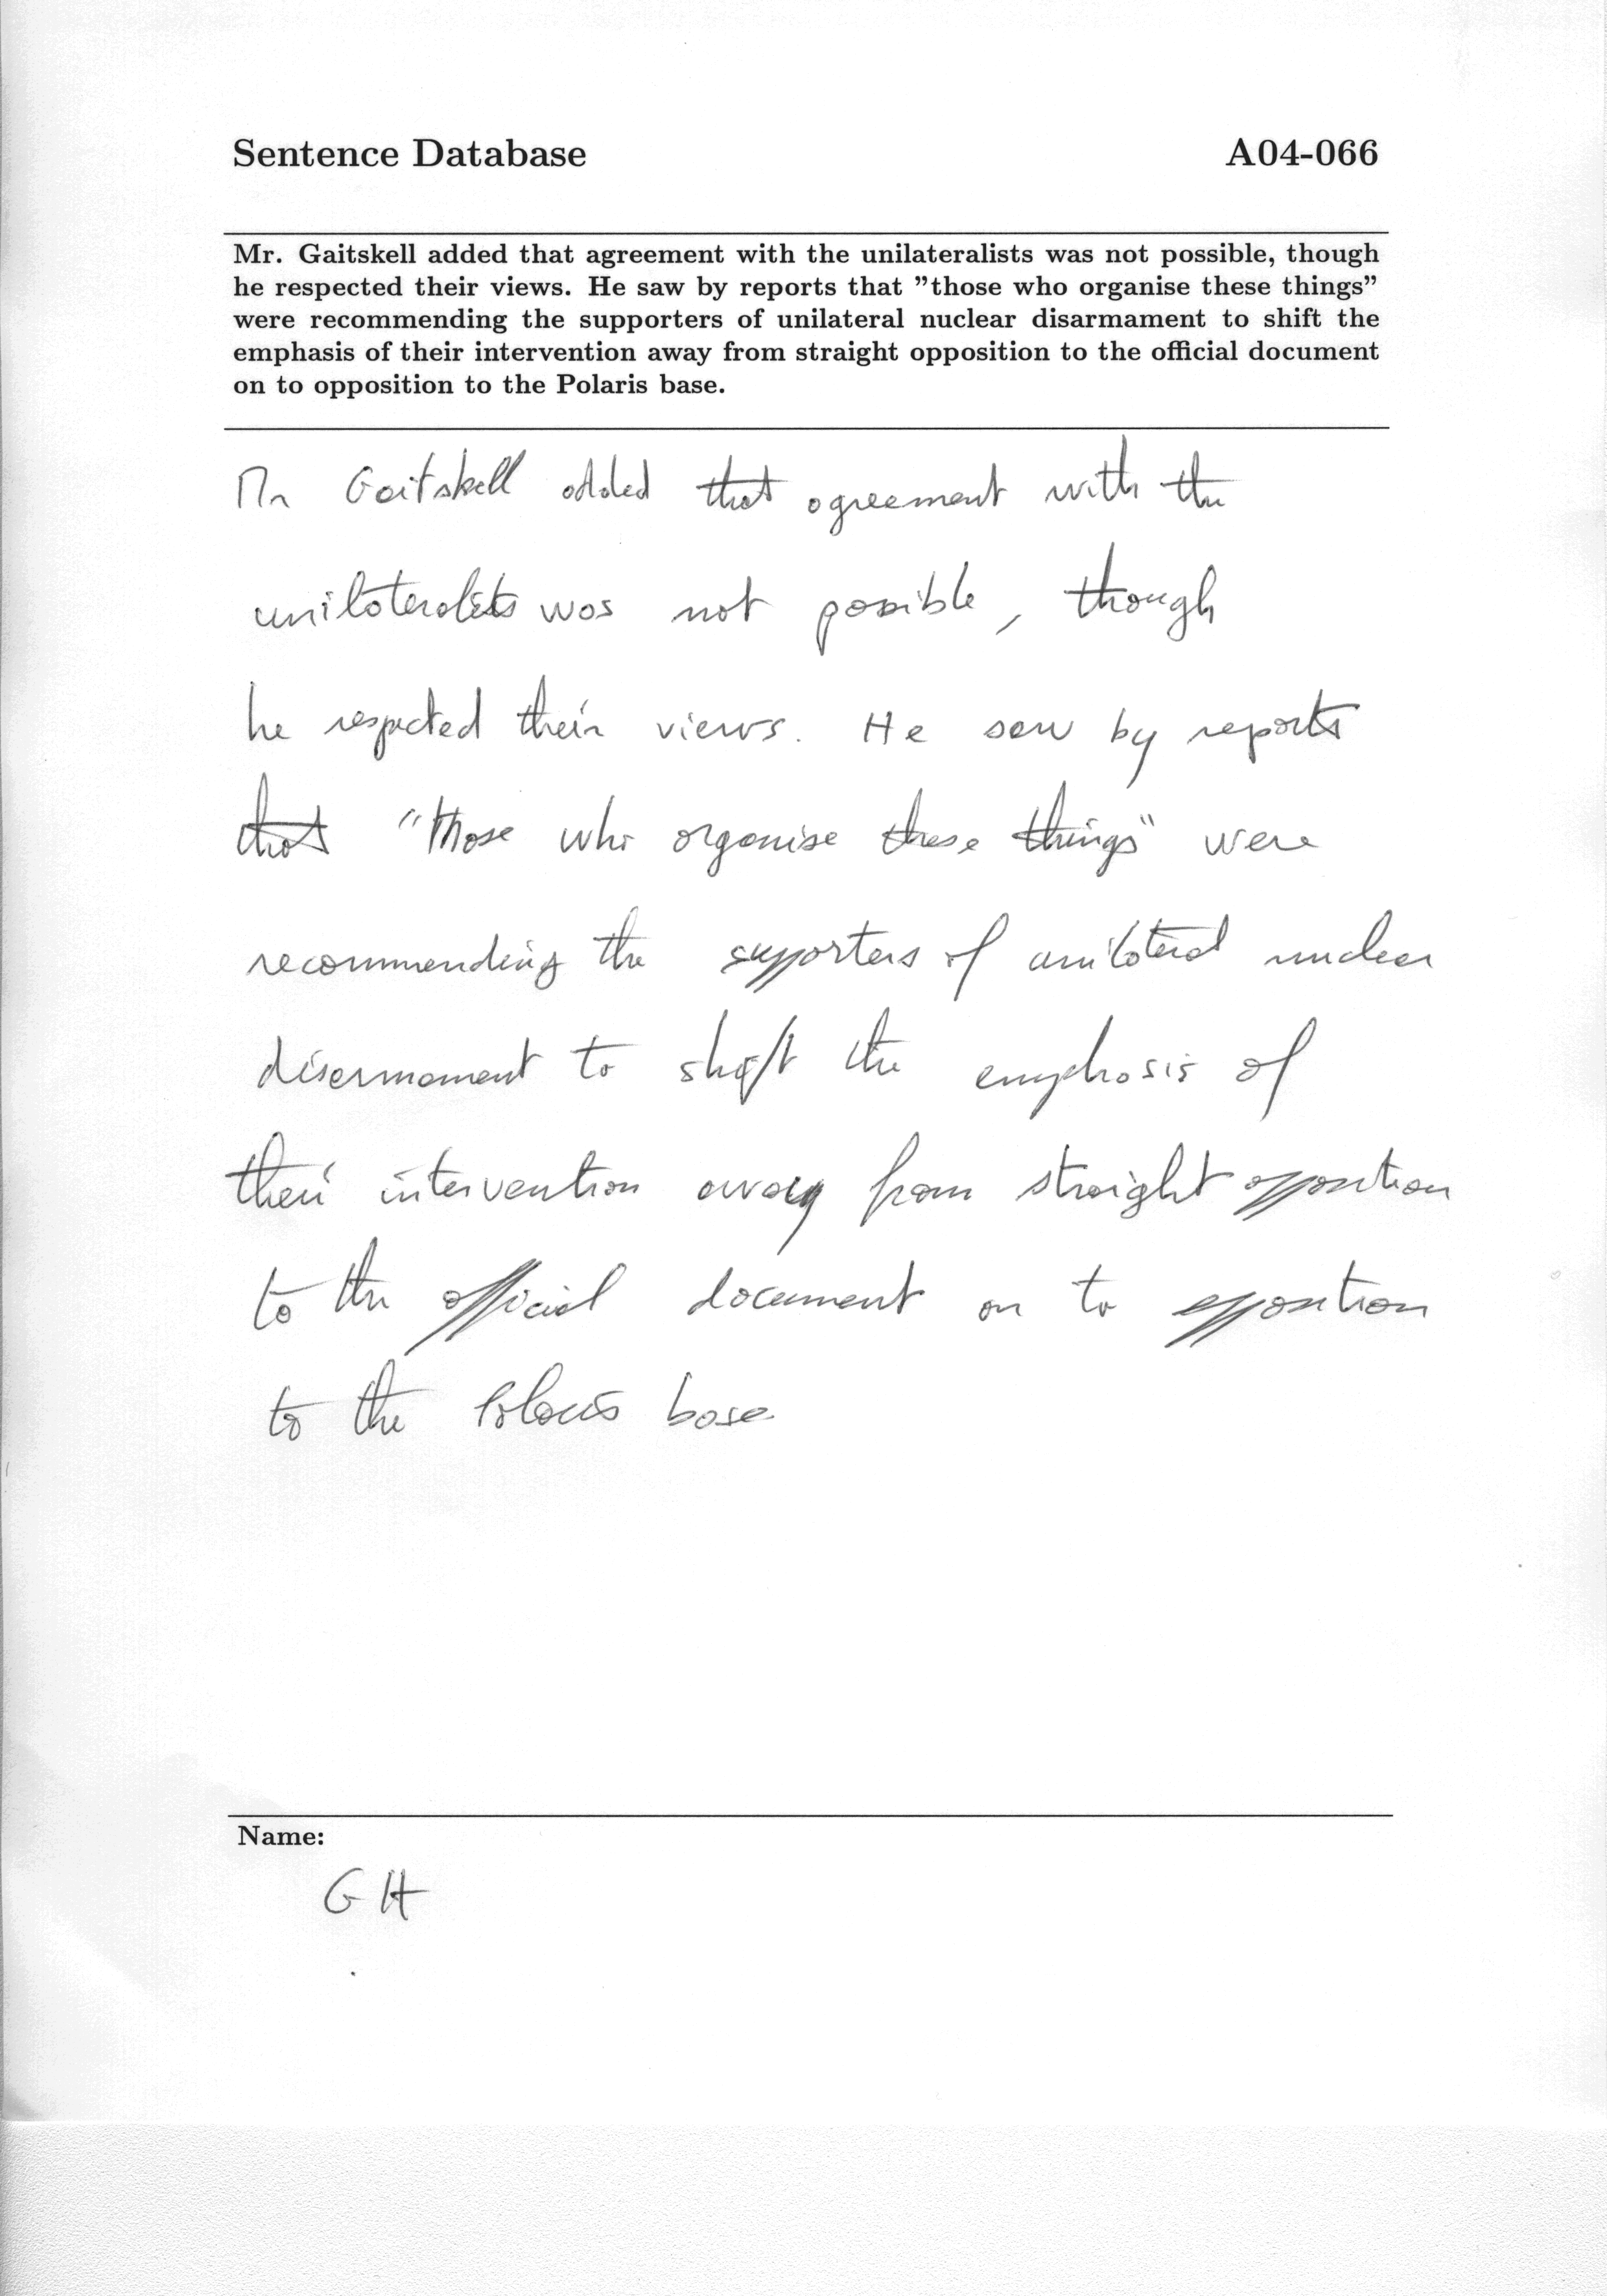 Sentence Database A04-066
Mr. Gaitskell added that agreement with the unilateralists was not possible, though
he respected their views. He saw by reports that ”those who organise these things”
were recommending the supporters of unilateral nuclear disarmament to shift the
emphasis of their intervention away from straight opposition to the official document
on to opposition to the Polaris base.
Mr Gaitskell added that agreement with the
unilateralists was not possible, though
he respected their views. He saw by reports
that "those who organise these things" were
recommending the supporters of unilateral nuclear
disarmament to shift the emphasis of
their intervention away from straight opposition
to the official document on to opposition
to the Polaris base
Name:
GH